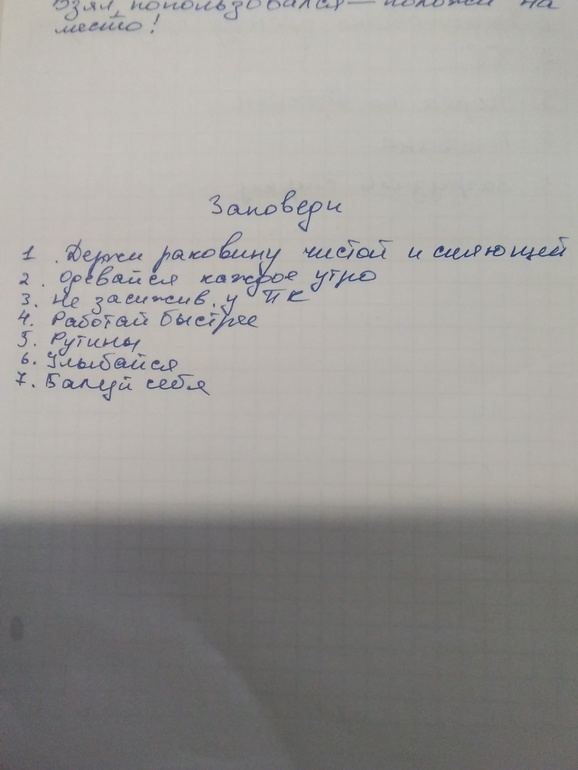 Взял, попользовался — положи на
место!
Заповеди
1. Держи раковину чистой и сияющей
2. Одевайся каждое утро
3. Не засижив. у ПК
4. Работай быстрее
5. Рутины
6. Улыбайся
7. Балуй себя